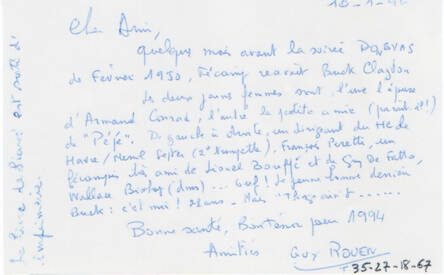 10-1-94
Cher Ami,
Quelques mois avant la soirée DONBYAS
de Février 1950, Fécamp recevait Buck Clayton
les deux jeunes femmes sont, l'une l'épouse
d'Armand Conrad, l'autre la petite amie
de "Péjé". De gauche à droite, un dirigeant du HC de
Havre, (2e trompette), François Peretti, un
fécampois très ami de Lionel Bouffé et de Guy De Fatto,
Wallace Bishop (dms) ... Ouf! le jeune homme derrière
Buck : c'est moi!
Bonne santé, Bonheur pour 1994
Amitiés Guy ROUEN
35-27-18-67
Le livre de est sorti d'
imprimerie.